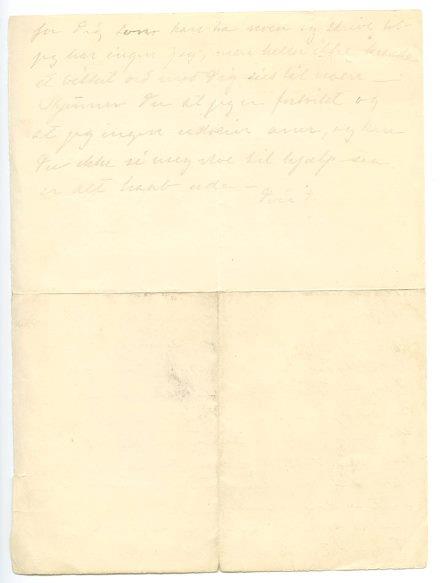 for Dig, som kan ha noen og skrive til
jeg har ingen jeg, men heller ikke
et ord mod Dig sies til noen —
Skjønner Du at jeg er fortvilet og
at jeg ingen aner, og kan
Du ikke si meg noe til hjælp saa
er alt haab ude —